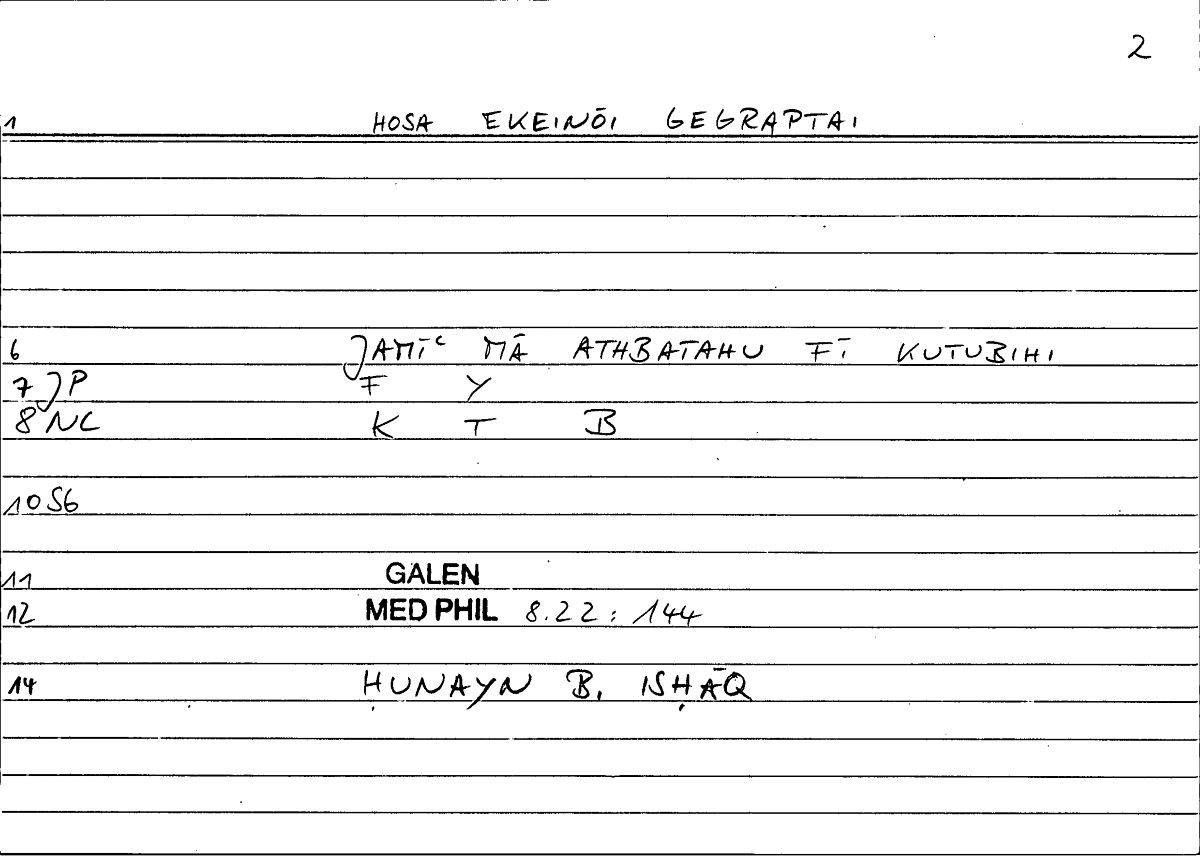 2
1 HOSA EKEINŌI GEGRAPTAI
6 JAMĪʿ MĀ ATHBATAHU FĪ KUTUBIHI
7 JP F Y
8 NC K T B
10 SG
11 GALEN
12 MED PHIL 8.22 : 144
14 ḤUNAYN B. ISḤĀQ